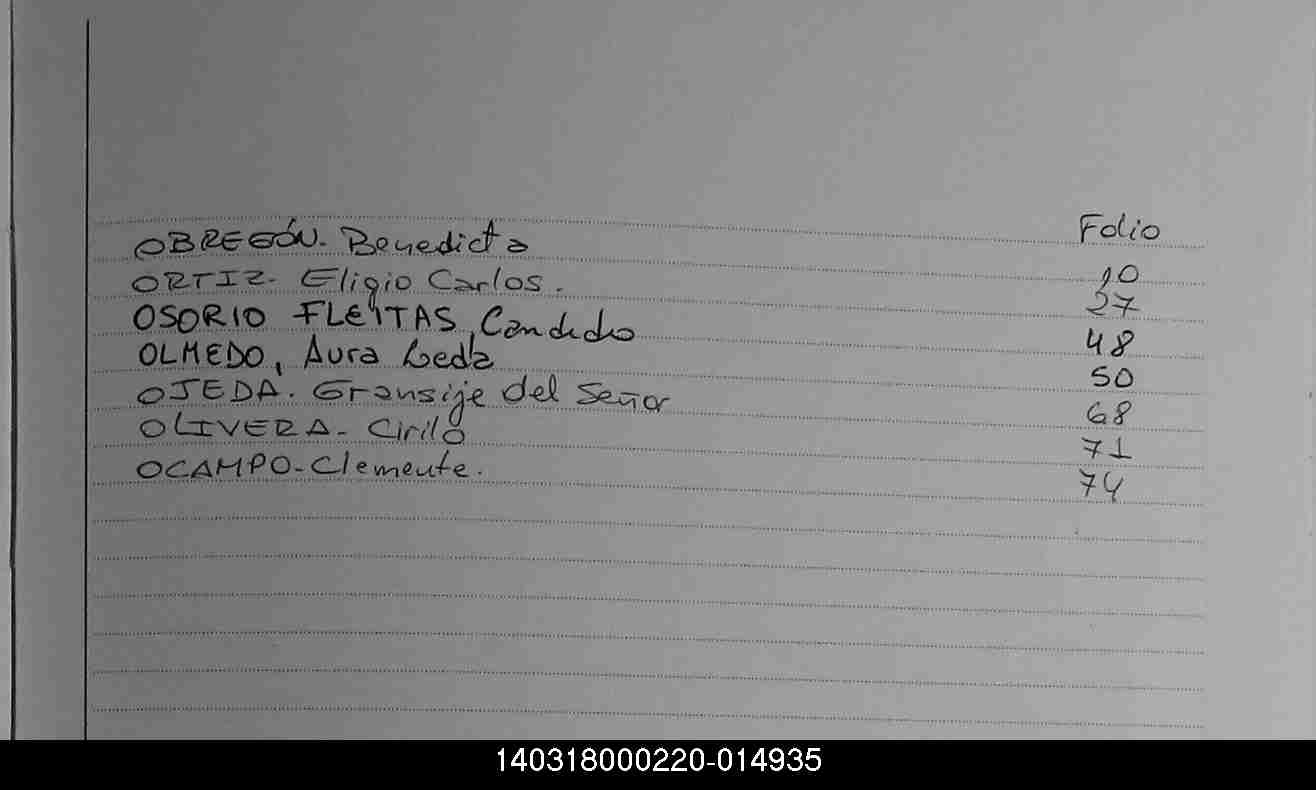 Folio
OBREGÓN. Benedicta 10
ORTIZ. Eligio Carlos. 27
OSORIO FLEITAS, Candido 48
OLMEDO, Aura Leda 50
OJEDA. Gransije del Señor 68
OLIVERA- Cirilo 71
OCAMPO-Clemente. 74
140318000220-014935